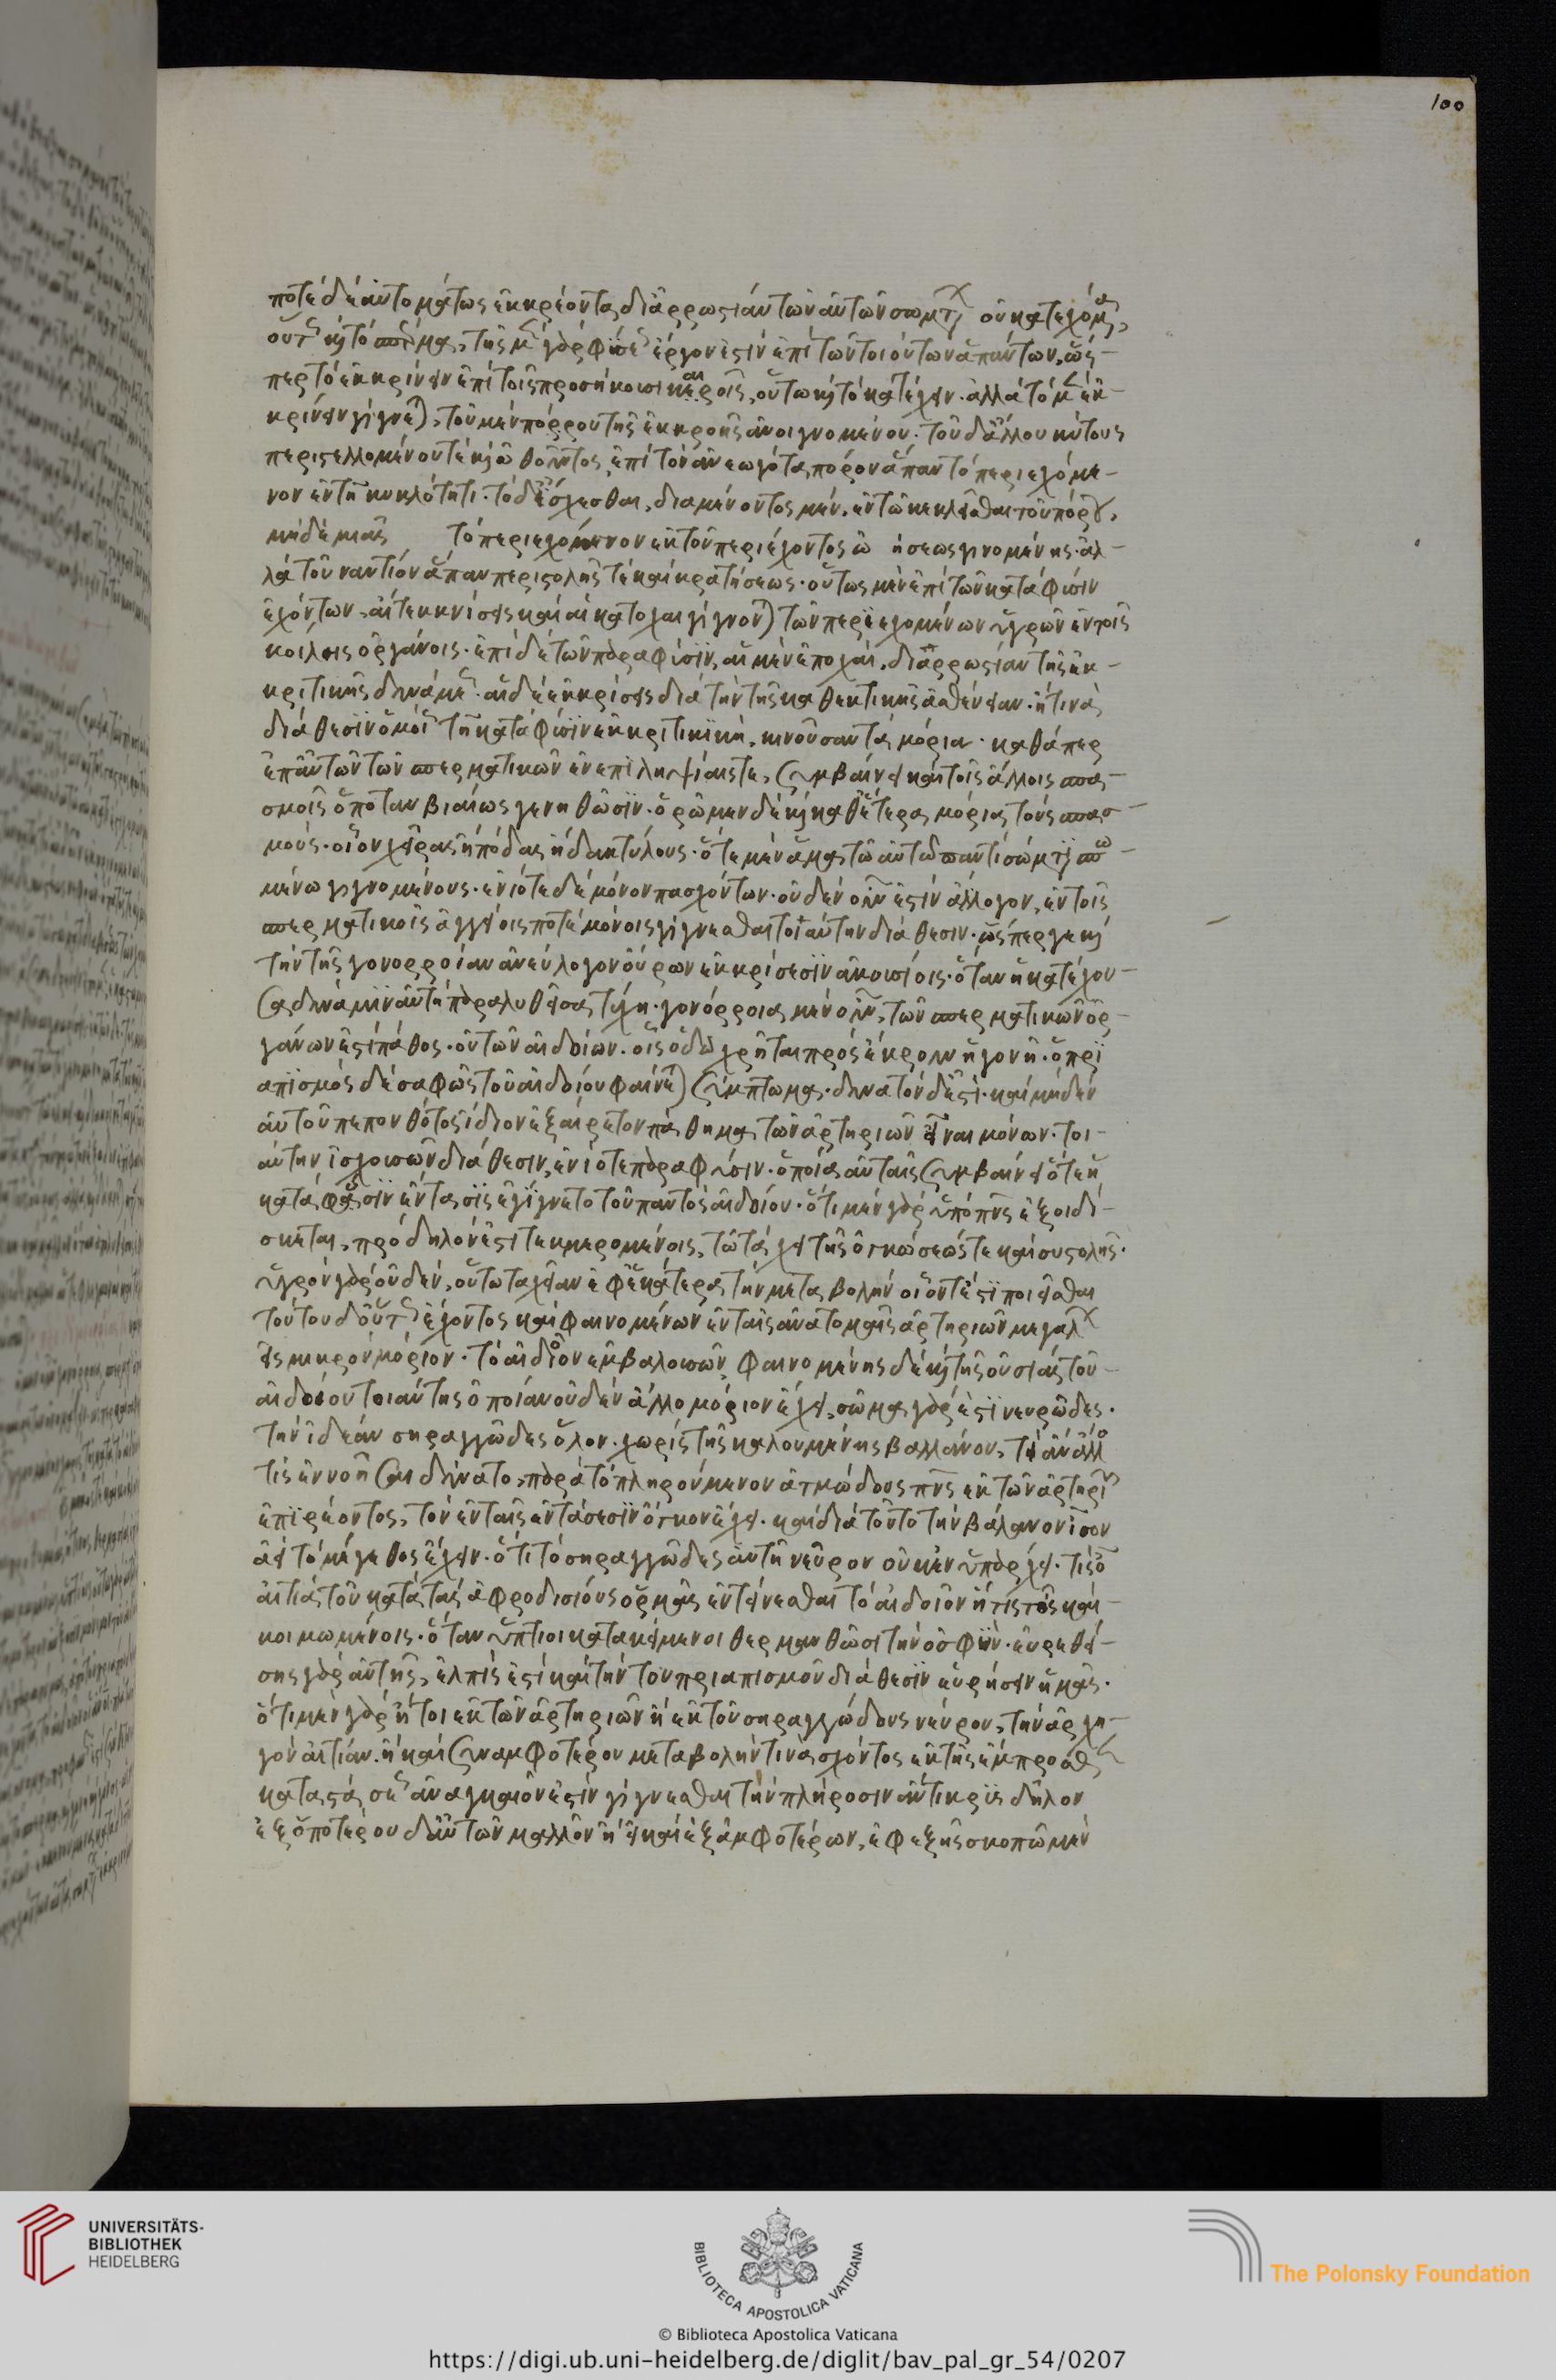 100
ποτὲ δὲ αὐτομάτως ἐκκρέοντα δι' ἀρρωστίαν τῶν αὐτῶν σωμάτων οὐ κατεχόμενα,
οὕτω καὶ τὸ σπέρμα, τῆς μὲν γὰρ φύσεως ἔργον ἐστὶν ἐπὶ τῶν τοιούτων ἁπάντων, ὥσ-
περ τὸ ἐκκρίνειν ἐπὶ τοῖς προσήκουσι καιροῖς, οὕτω καὶ τὸ κατέχειν· ἀλλὰ τὸ μὲν ἐκ-
κρίνειν γίγνεται, τοῦ μὲν πόρρου τῆς ἐκκροῆς ἀνοιγνομένου· τοῦ δ' ἄλλου κύτους
περιστελλομένου τὲ καὶ ὠθοῦντος ἐπὶ τὸν ἀνεωγότα πόρον ἅπαν τὸ περιεχόμε-
νον ἐν τῇ κυκλότητι· τὸ δ' ἴσχεσθαι, διαμένοντος μὲν, ἐν τῷ κεκλεῖσθαι τοῦ πόρου,
μηδεμιᾶς τὸ περιεχόμενον ἐκ τοῦ περιέχοντος ὠ ήσεως γινομένης· ἀλ-
λὰ τοὐναντίον ἅπαν περιστολῆς τὲ καὶ κρατήσεως· οὕτως μὲν ἐπὶ τῶν κατὰ φύσιν
ἐχόντων, αἵ τε κκνίσεις καὶ αἱ κατοχαι γίγνονται τῶν περιεχομένων ὑγρῶν ἐν τοῖς
κοίλοις ὀργάνοις· ἐπὶ δὲ τῶν παρα φύσιν, αἱ μὲν ἐποχαὶ, δι' ἀρρωστίαν τῆς ἐκ-
κριτικῆς δυνάμεως· αἱ δὲ ἐκκρίσεις διὰ τὴν τῆς καθεκτικῆς ἀσθένειαν· ἤ τινὰ
διάθεσιν ὁμοίως τῇ κατὰ φύσιν ἐκκριτικικὴ, κινοῦσαν τὰ μόρια· καθάπερ
ἐπ' αὐτῶν τῶν σπερματικῶν ἐν ἐπιληψίαις τε, συμβαίνει καὶ τοῖς ἄλλοις σπα-
σμοῖς ὁπόταν βιαίως γενηθῶσιν· ὁρῶμεν δὲ καὶ καθ' ἕτερα μόρια τοὺς σπασ-
μούς· οἷον χεῖρας ἢ πόδας ἢ δακτύλους· ὅτε μὲν ἅμα τῷ αὐτῷ παντὶ σώματι σπω-
μένω γιγνομένους· ἐνίοτε δὲ μόνον πασχόντων· οὐδὲν οὖν ἐστὶν ἄλογον, ἐν τοῖς
σπερματικοῖς ἀγγείοις ποτὲ μόνοις γίγνεσθαι τοιαύτην διάθεσιν· ὥσπερ γε καὶ
τὴν τῆς γονορροίαν ἀνεύλογον οὔρων ἐκκρίσεσιν ἀκουσίοις· ὅταν ἡ κατέχου-
σα δυνάμιν αὐτὴ παραλυθεῖσα τύχη· γονόρροια μὲν οὖν, τῶν σπερματικῶν ὀρ-
γάνων ἐστὶ πάθος· οὐ τῶν αἰδοίων· οἷς ὁδῷ χρῆται πρὸς ἔκρουν ἡ γονή· ὁ πρι
απισμὸς δὲ σαφῶς τοῦ αἰδοίου φαίνεται σύμπτωμα· δυνατὸν δ' ἐστὶ· καὶ μηδὲν
αὐτοῦ πεπονθότος ἴδιον ἐξαίρετον πάθημα τῶν ἀρτηριῶν εἶναι μόνων· τοι-
αύτην ἰσχουσῶν διάθεσιν, ἐνίοτε παρα φύσιν· ὁποία αὐταῖς συμβαίνει ὅτε ἡ
κατὰ φύσιν ἔντασις ἐγίγνετο τοῦ παντὸς αἰδοίου· ὅτι μὲν γὰρ ὑπὸ πνεύματος ἐξοιδί-
σκεται, πρόδηλόν ἐστι τεκμερομένοις, τῶ τάχει τῆς ὀγκώσεώς τε καὶ συστολῆς·
ὑγρὸν γὰρ οὐδὲν, οὕτω ταχεῖαν ἐφ' ἑκάτερα τὴν μεταβολὴν οἷόν τέ ἐστι ποιεῖσθαι
τούτου δ' οὕτως ἔχοντος καὶ φαινομένων ἐν ταῖς ἀνατομαῖς ἀρτηριῶν μεγάλων
εἰς μικρὸν μόριον· τὸ αἰδοῖον ἐμβαλουσῶν, φαινομένης δὲ καὶ τῆς οὐσίας τοῦ
αἰδοίου τοιαύτης ὁποίαν οὐδὲν ἄλλο μόριον ἔχει, σῶμα γὰρ ἐστὶ νευρῶδες·
τὴν ἰδέαν σηραγγῶδες ὅλον· χωρὶς τῆς καλουμένης βαλλάνου, τί ἂν ἄλλο
τίς ἐννοῆσαι δύναιτο, παρὰ τὸ πληρούμενον ἀτμώδους πνεύματος ἐκ τῶν ἀρτηριῶν
ἐπιρέοντος, τὸν ἐν ταῖς ἐντάσεσιν ὄγκον ἔχει· καὶ διὰ τοῦτο τὴν βάλανον ἴσον
ἀεὶ τὸ μέγεθος ἔχειν· ὅτι τὸ σηραγγῶδες αὐτῆ νεῦρον οὐκὲν ὑπάρχει· τίς οὖν
αἰτία τοῦ κατὰ τὰς ἀφροδισίους ὁρμὰς ἐντείνεσθαι τὸ αἰδοῖον ἤ τις τοῖς καὶ
κοιμωμένοις· ὅταν ὕπτιοι κατακείμενοι θερμανθῶσι τὴν ὀσφῦν· εὑρεθεί-
σης γὰρ αὐτῆς, ἐλπίς ἐστὶ καὶ τὴν τοῦ πριαπισμοῦ διάθεσιν εὑρήσειν ἡμᾶς·
ὅτι μὲν γὰρ ἤτοι ἐκ τῶν ἀρτηριῶν ἢ ἐκ τοῦ σηραγγώδους νεύρου, τὴν ἀρχη-
γὸν αἰτίαν· ἢ καὶ συναμφοτέρου μεταβολήν τινα σχόντος ἐκ τῆς ἔμπροσθεν
καταστάσεως ἀναγκαῖόν ἐστιν γίγνεσθαι τὴν πλήροσιν ἄντικρις δῆλον
ἐξ ὁποτέρου δ' αὐτῶν μαλλὸν ἢ εἰ καὶ ἐξ ἀμφοτέρων, ἐφεξῆς σκοπῶμεν
UNIVERSITÄTS-
BIBLIOTHEK
HEIDELBERG
BIBLIOTECA APOSTOLICA VATICANA
The Polonsky Foundation
© Biblioteca Apostolica Vaticana
https://digi.ub.uni-heidelberg.de/diglit/bav_pal_gr_54/0207